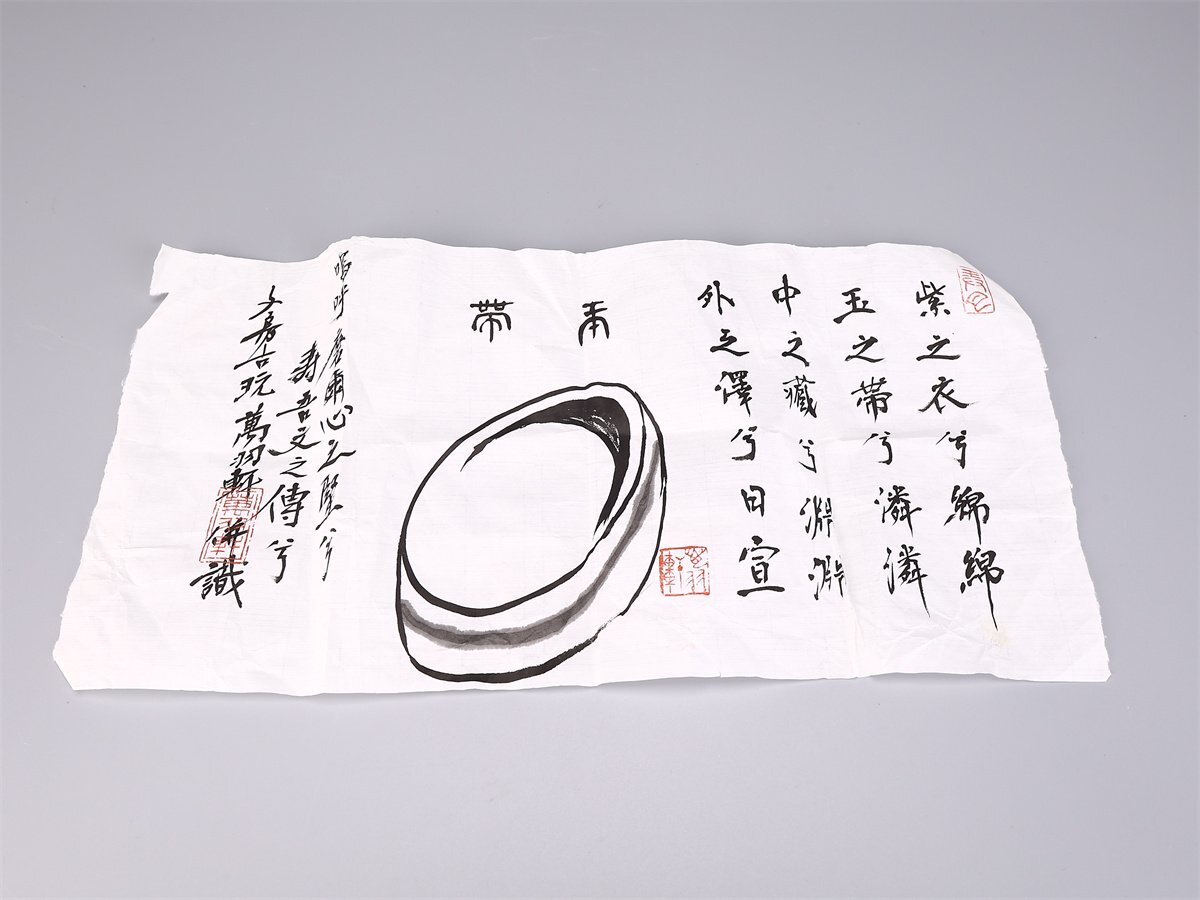 紫之衣兮綿綿
玉之帶兮潾潾
中之藏兮淵淵
外之澤兮日宣
帶
嗚呼磨爾心之堅兮
壽吾文之傳兮
文房古玩萬羽軒併識
萬羽軒